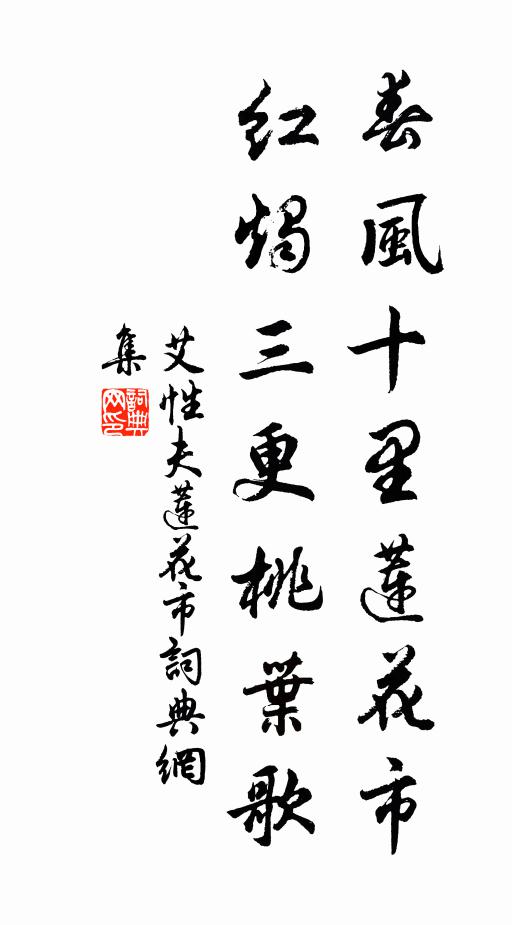 春風十里蓮花市
紅燭三更桃葉歌
艾性夫蓮花市詞典網
集
詞典
网印